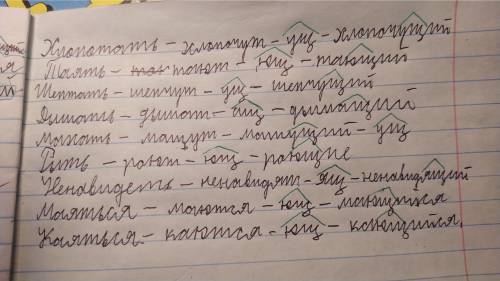 Хлопотать – хлопочут – ущ – хлопочущий
Таять – тают – ющ – тающий
Шептать – шепчут – ущ – шепчущий
Дышать – дышат – ащ – дышащий
Махать – машут – машущий – ущ
Рыть – роют – ющ – роющие
Ненавидеть – ненавидят – ящ – ненавидящий
Маяться – маются – ющ – мающийся
Каяться – каются – ющ – кающийся.